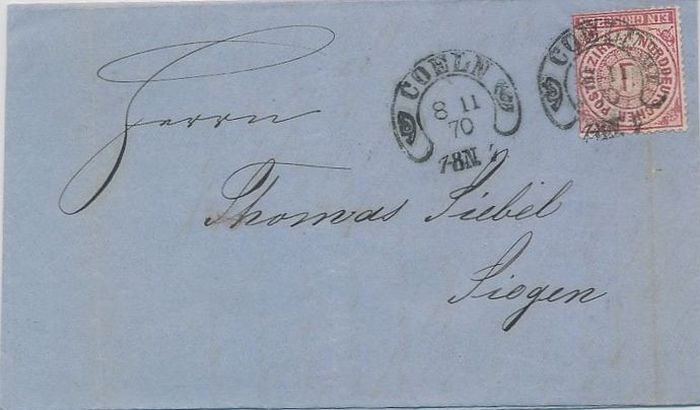 COELN
8 11
70
7-8N.
COELN
EIN GROSCHEN
NORDDEUTSCHER POSTBEZIRK
1
Herrn
Thomas Siebel
Siegen